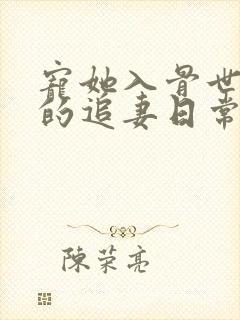 寵她入骨世
的追妻日常
陳榮亮